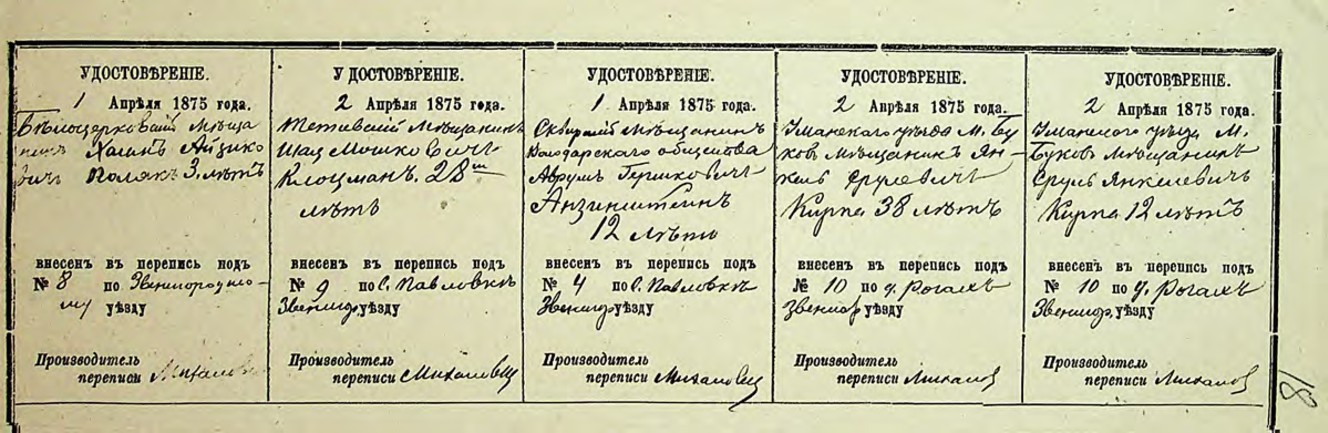 УДОСТОВѢРЕНІЕ.
1 Апрѣля 1875 года.
Бѣлоцерковскій Мѣща
нинъ Хаимъ Айзико
вичъ Полякъ 3. лѣтъ
внесенъ въ перепись подъ
№ 8 по Звенигородско-
му уѣзду
Производитель
переписи
УДОСТОВѢРЕНІЕ.
2 Апрѣля 1875 года.
Тетіевскій Мѣщанинъ
Шац Мошковичъ
Клоцманъ. 28ми
лѣтъ
внесенъ въ перепись подъ
№ 9 по с. Павловкѣ
Звениг. уѣзду
Производитель
переписи
УДОСТОВѢРЕНІЕ.
1 Апрѣля 1875 года.
Сквирскій Мѣщанинъ
Володарскаго общества
Аврумъ Гершковичъ
Анзинштеинъ
12 лѣтъ
внесенъ въ перепись подъ
№ 4 по с. Павловкѣ
уѣзду
Производитель
переписи
УДОСТОВѢРЕНІЕ.
2 Апрѣля 1875 года.
Уманскаго уѣзда М. Бу
ковъ мѣщанинъ Ян-
кель Срулевичъ
Кирпа 38 лѣтъ
внесенъ въ перепись подъ
№ 10 по д. Рогахъ
уѣзду
Производитель
переписи
УДОСТОВѢРЕНІЕ.
2 Апрѣля 1875 года.
Уманскаго уѣзда М.
Буковъ Мѣщанинъ
Сруль Янкелевичъ
Кирпа 12 лѣтъ
внесенъ въ перепись подъ
№ 10 по д. Рогахъ
уѣзду
Производитель
переписи
81